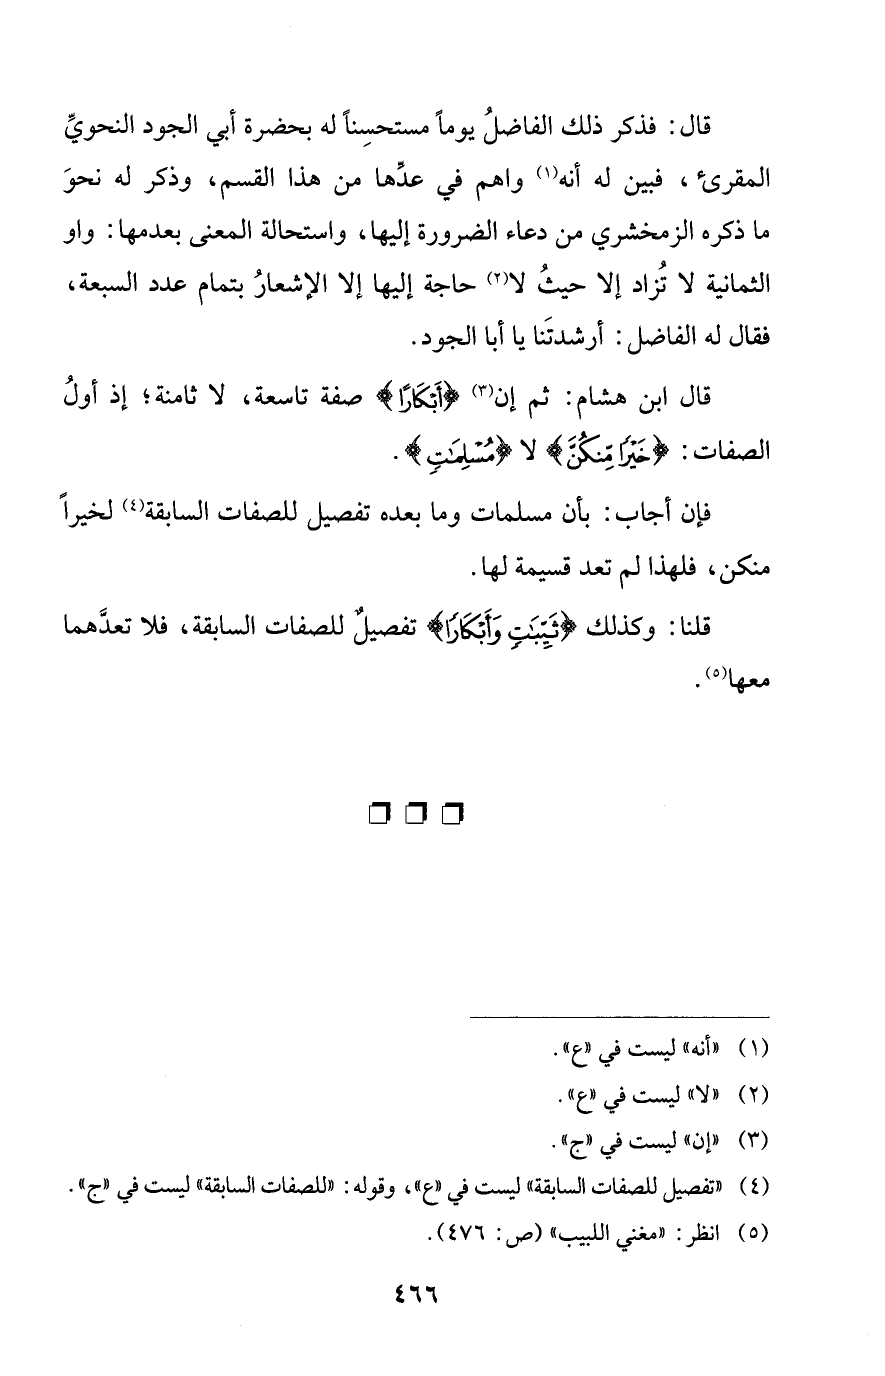 قال: فذكر ذلك الفاضلُ يوماً مستحسِناً له بحضرة أبي الجود النحويِّ
المقرئ، فبين له أنه(١) واهم في عدِّها من هذا القسم، وذكر له نحوَ
ما ذكره الزمخشري من دعاء الضرورة إليها، واستحالة المعنى بعدمها: واو
الثمانية لا تُزاد إلا حيثُ لا(٢) حاجة إليها إلا الإشعارُ بتمام عدد السبعة،
فقال له الفاضل: أرشدتَنا يا أبا الجود.
قال ابن هشام: ثم إن(٣) ﴿أَبْكَارًا﴾ صفة تاسعة، لا ثامنة؛ إذ أولُ
الصفات: ﴿خَيْرًا مِّنكُنَّ﴾ لا ﴿مُسْلِمَٰتٍ﴾.
فإن أجاب: بأن مسلمات وما بعده تفصيل للصفات السابقة(٤) لخيراً
منكن، فلهذا لم تعد قسيمة لها.
قلنا: وكذلك ﴿ثَيِّبَٰتٍ وَأَبْكَارًا﴾ تفصيلٌ للصفات السابقة، فلا تعدَّهما
معها(٥).
(١) «أنه» ليست في «ع».
(٢) «لا» ليست في «ع».
(٣) «إن» ليست في «ج».
(٤) «تفصيل للصفات السابقة» ليست في «ع»، وقوله: «للصفات السابقة» ليست في «ج».
(٥) انظر: «مغني اللبيب» (ص: ٤٧٦).
٤٦٦